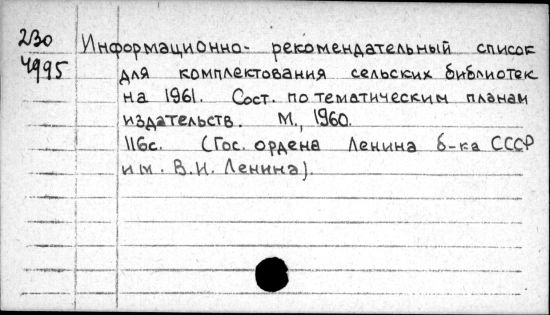 230
4995
Информационно- рекомендательный список
для комплектования сельских библиотек
на 1961. Сост. по тематическим планам
издательств. М., 1960.
116с. (Гос. ордена Ленина б-ка СССР
им. В.И. Ленина).